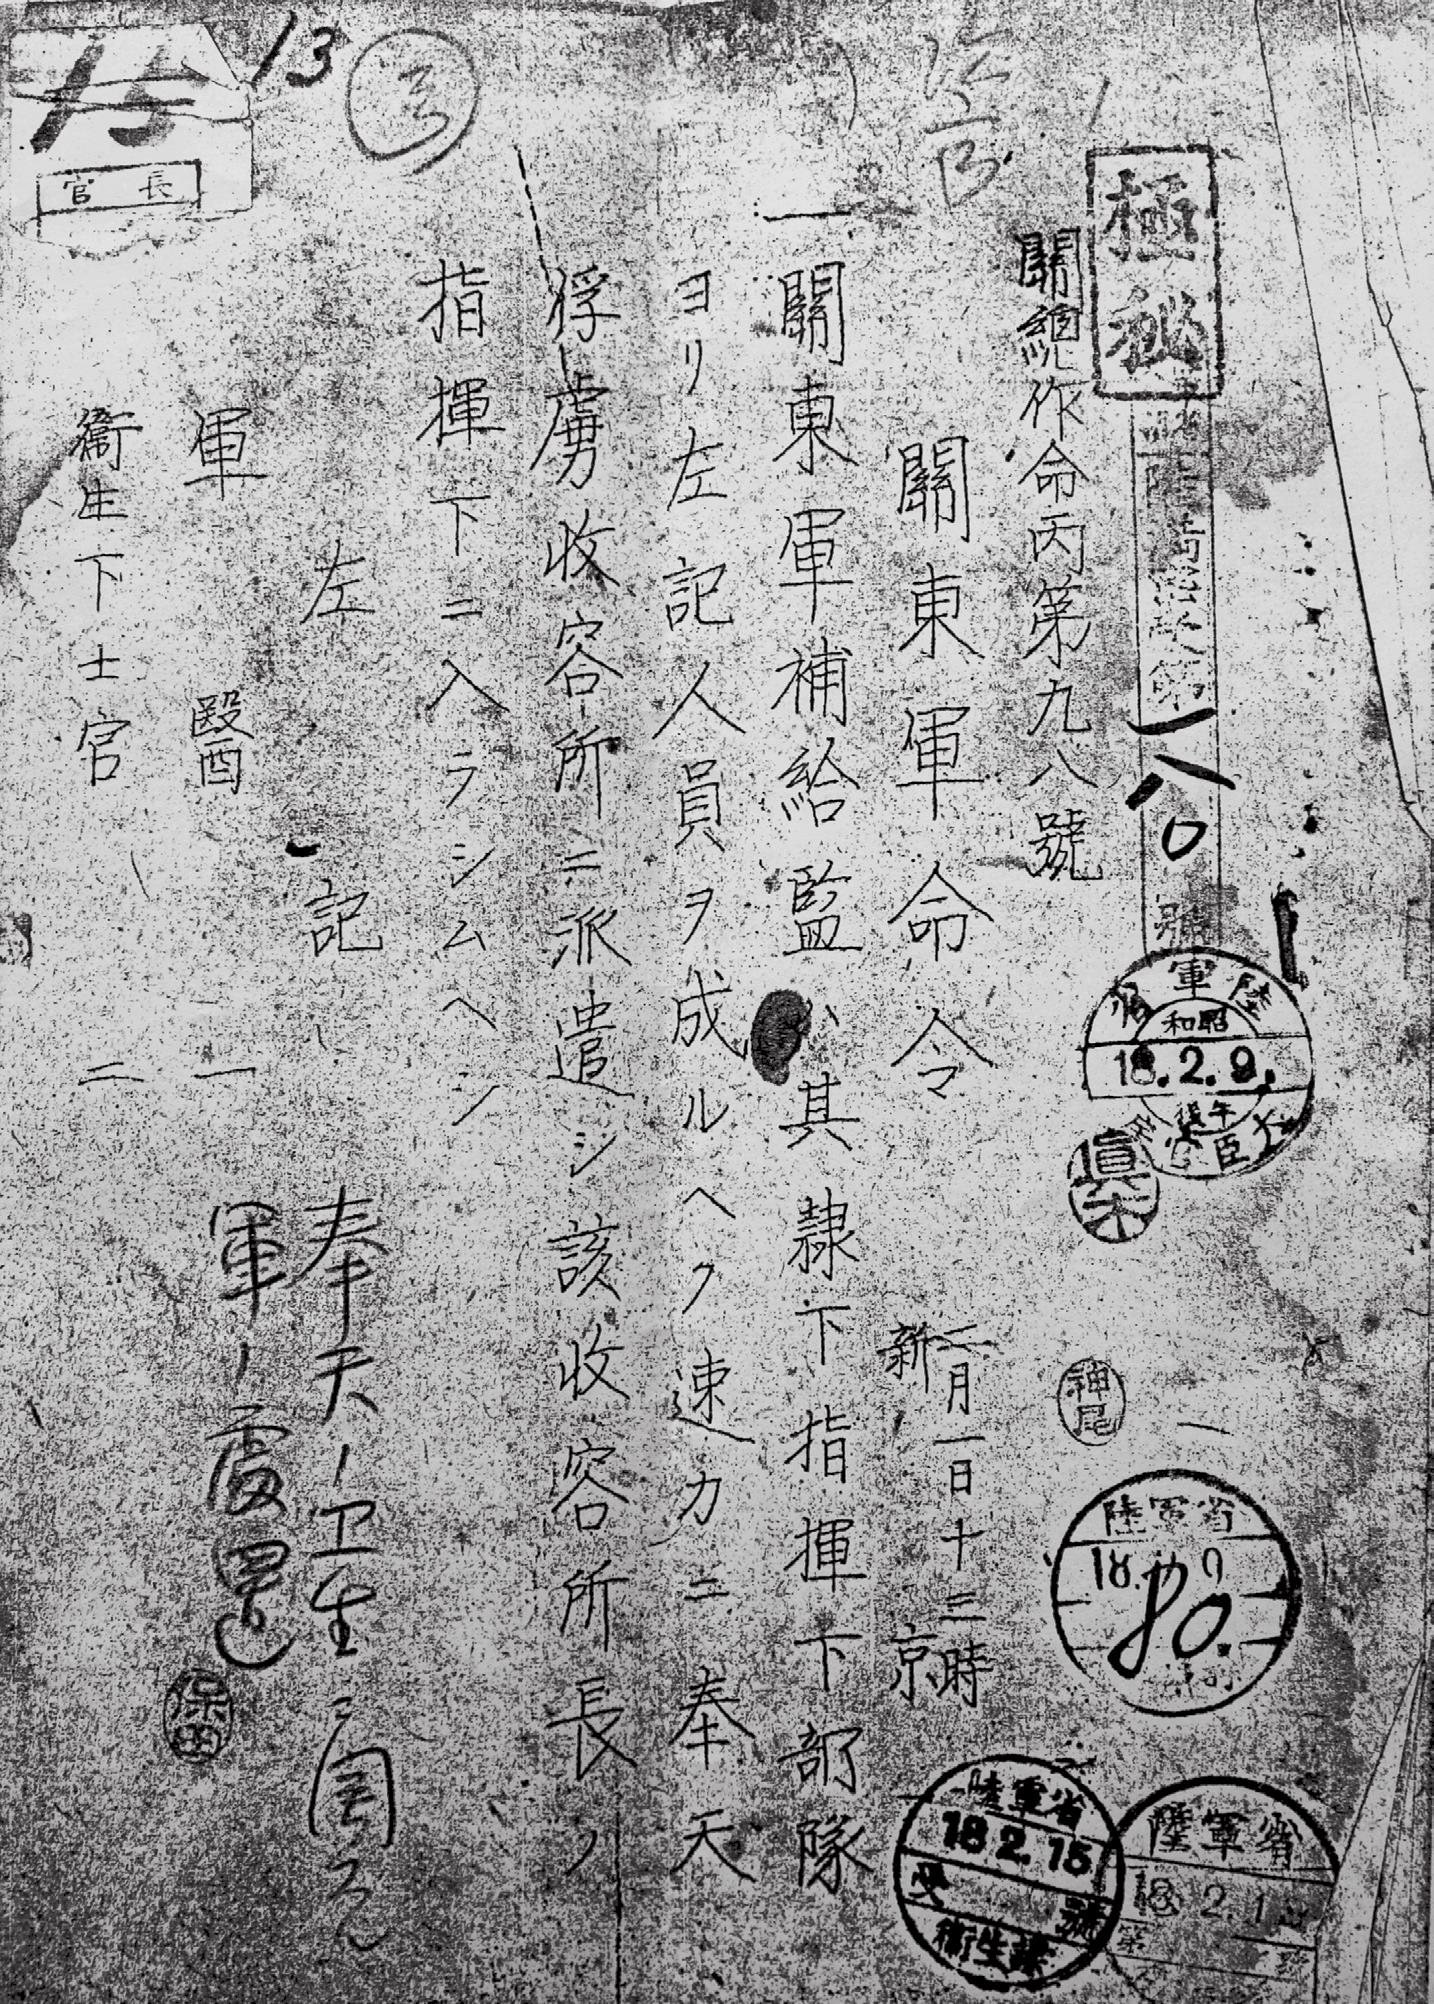 極秘
一八〇號
陸軍省
昭和
18.2.9.
午後
大臣官房
眞木
神尾
陸軍省
陸軍省
18.2.15
受
號
衛生課
陸軍省
18.2.1
第
號
關總作命丙第九八號
關東軍命令
二月一日十三時
新京
一關東軍補給監ハ其隷下指揮下部隊
ヨリ左記人員ヲ成ルヘク速カニ奉天
俘虜收容所ニ派遣シ該收容所長ノ
指揮下ニ入ラシムヘシ
左記
軍醫一
衞生下士官二
奉天ノ卫生ニ関スル
軍ノ處置
保田
13
長官